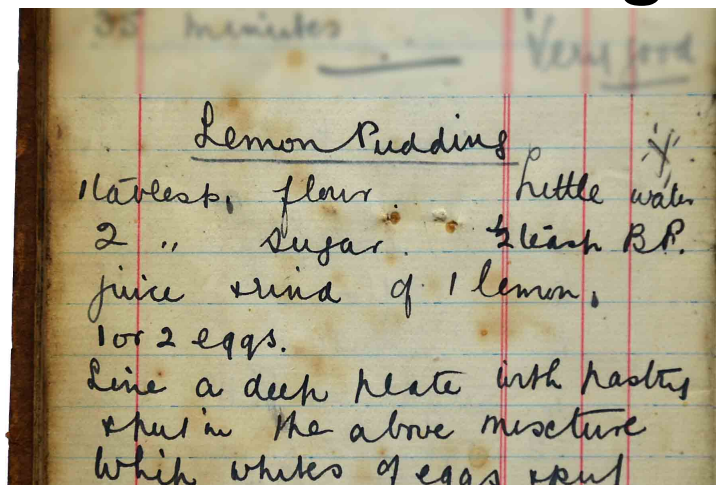 35 minutes
Very good
Lemon Pudding
1 tablesp. flour. Little water
2 " sugar. ½ teasp B.P.
juice & rind of 1 lemon.
1 or 2 eggs.
Line a deep plate with pastry
& put in the above mixture
Whip whites of eggs & put